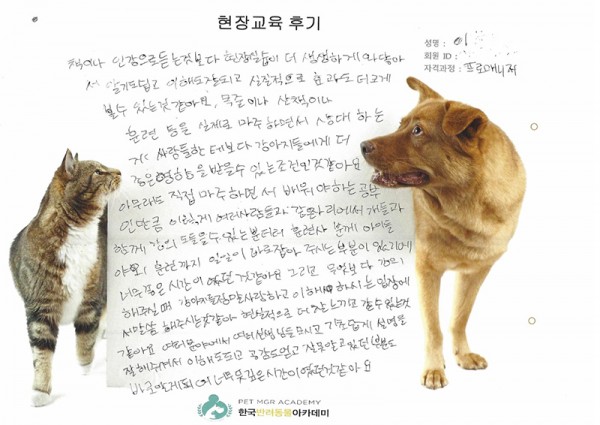 현장교육 후기
성명 : 이
회원 ID :
자격과정 : 프로매니저
책이나 인강으로 듣는것보다 현장실습이 더 생생하게 와닿아
서 알기도쉽고 이해도잘되고 실질적으로 효과도 더크게
볼수 있는것 같아요. 목줄이나 산책이나
훈련 등을 실제로 마주하면서 상대 하는
거 사람들한테보다 강아지들에게 더
좋은영향을 받을수 있는조건인것같아요
아무래도 직접 마주하면서 배워야하는 공부
인만큼 이렇게 여러사람들과 강아지
함께 강의 도들을수 있는
훈련까지 일일이 바로잡아 주시는 부분이 있는기에
너무좋은 시간이 였던 것같아요 그리고 무엇보다 강의
해주실 때 강아지를정말사랑하고 이해 하시는 입장에
서말씀 해주시는것같아 현실적으로 더 느끼고 갈수있는것
같아요 여러분야에서 여러선생님들 모시고 기초쉽게 설명을
잘해주셔서 이해도되고 공감도얻고 잘못알고있던 부분도
바로알게되어 너무좋은시간이였던것같아요
PET MGR ACADEMY
한국반려동물아카데미